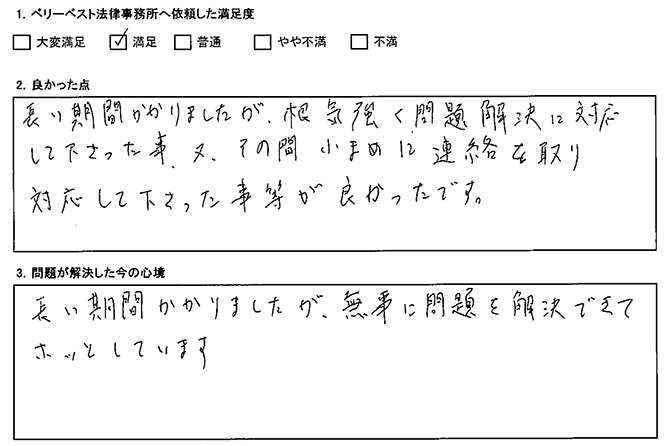 1. ベリーベスト法律事務所へ依頼した満足度
□ 大変満足 ☑ 満足 □ 普通 □ やや不満 □ 不満
2. 良かった点
長い期間かかりましたが、根気強く問題解決に対応
して下さった事、又、その間小まめに連絡を取り
対応して下さった事等が良かったです。
3. 問題が解決した今の心境
長い期間かかりましたが、無事に問題を解決できて
ホッとしています